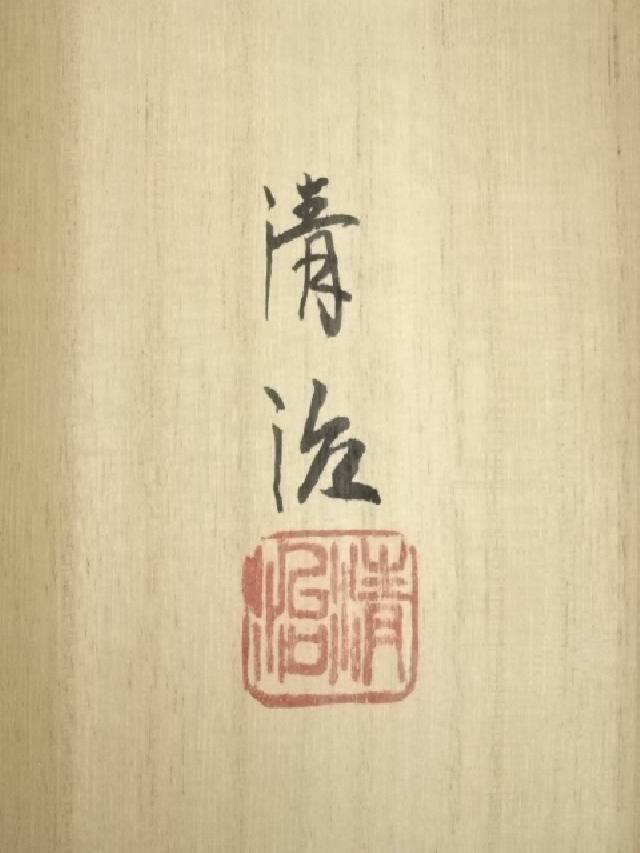 清治
清治